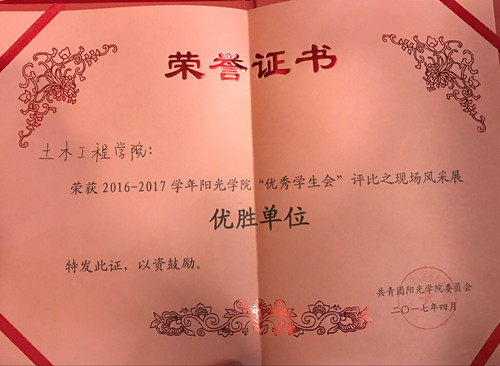 荣誉证书
土木工程学院：
荣获2016-2017学年阳光学院“优秀学生会”评比之现场风采展
优胜单位
特发此证，以资鼓励。
共青团阳光学院委员会
二〇一七年四月